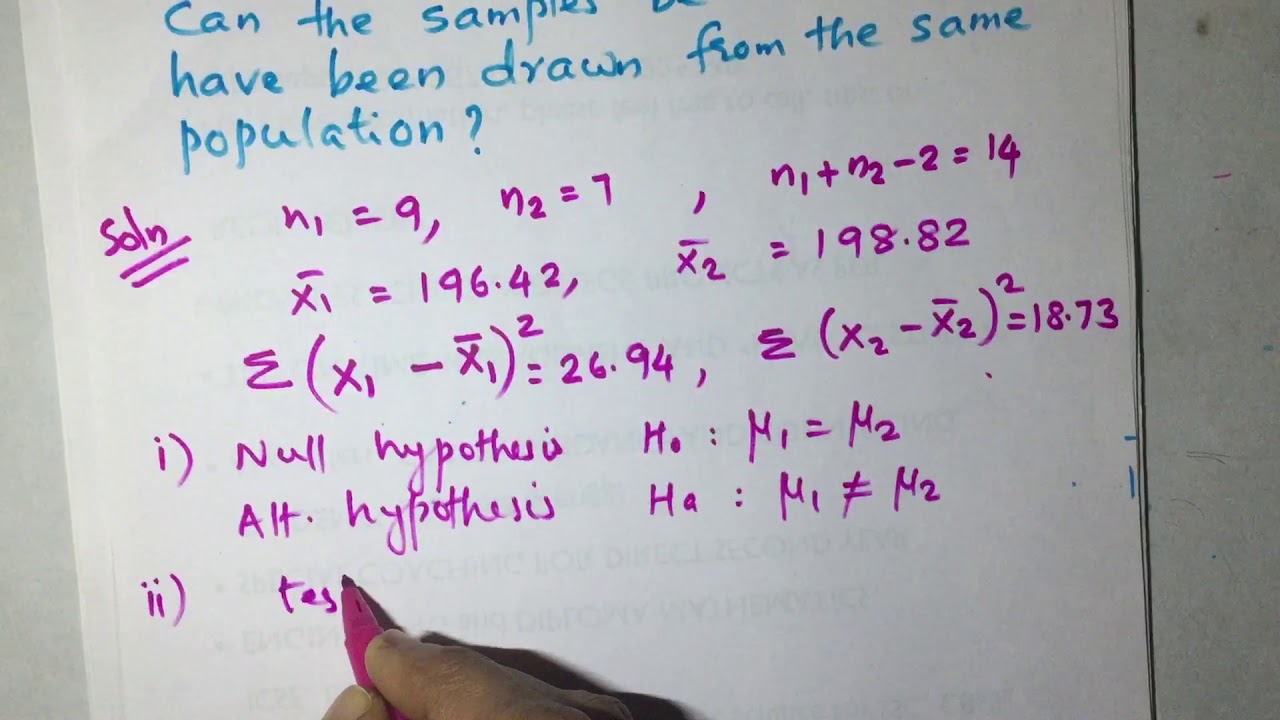 Can the samples
have been drawn from the same
population?
Soln n₁ = 9, n₂ = 7 , n₁ + n₂ - 2 = 14
x̄₁ = 196.42, x̄₂ = 198.82
Σ(x₁ - x̄₁)² = 26.94, Σ(x₂ - x̄₂)² = 18.73
i) Null hypothesis H₀ : μ₁ = μ₂
Alt. hypothesis Ha : μ₁ ≠ μ₂
ii) tes